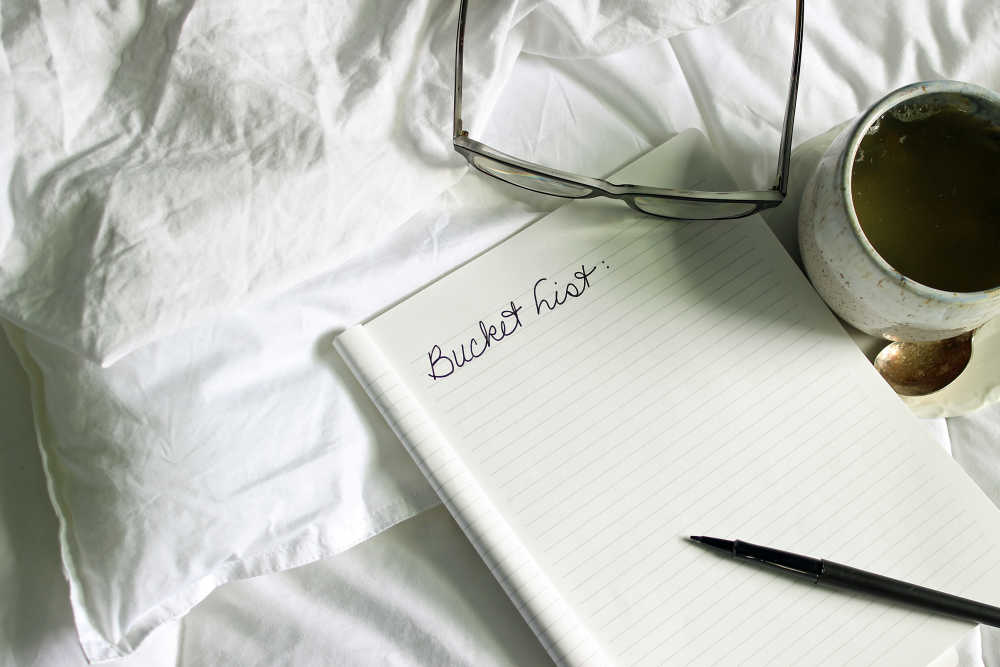 Bucket list: